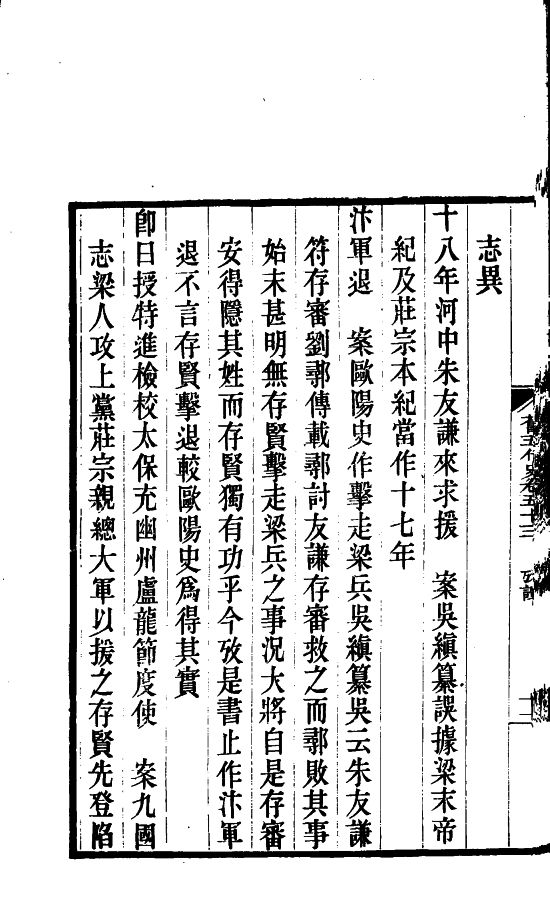 志異
十八年河中朱友謙來求援　案吳縝纂誤據梁末帝
紀及莊宗本紀當作十七年
汴軍退　案歐陽史作擊走梁兵吳縝纂吳云朱友謙
符存審劉鄩傳載鄩討友謙存審救之而鄩敗其事
始末甚明無存賢擊走梁兵之事況大將自是存審
安得隱其姓而存賢獨有功乎今攷是書止作汴軍
退不言存賢擊退較歐陽史爲得其實
卽日授特進檢校太保充幽州盧龍節度使　案九國
志梁人攻上黨莊宗親總大軍以援之存賢先登陷